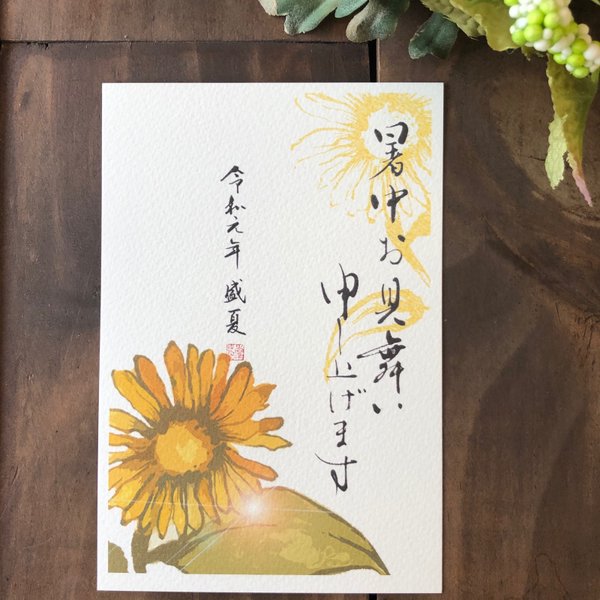 暑中お見舞い
申し上げます
令和元年 盛夏